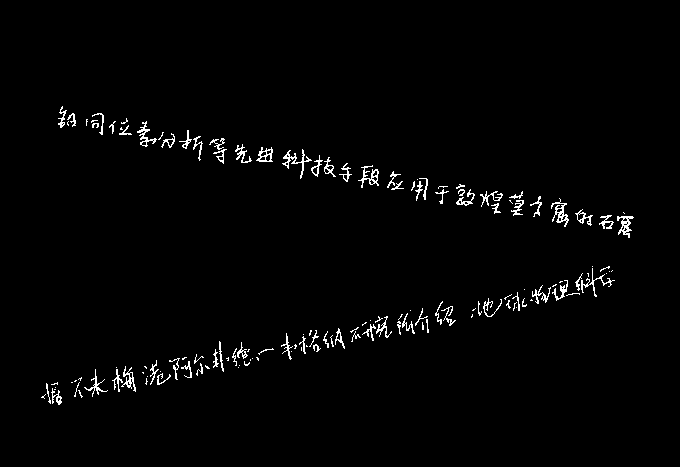 铅同位素分析等先进科技手段应用于敦煌莫高窟的石窟
据不来梅港阿尔弗德一韦格纳研究所介绍，地球物理科学